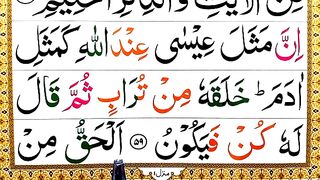 مِنَ الْاٰيٰتِ وَالذِّكْرِ الْحَكِيْمِ
اِنَّ مَثَلَ عِيْسٰى عِنْدَ اللّٰهِ كَمَثَلِ
اٰدَمَ ؕ خَلَقَهٗ مِنْ تُرَابٍ ثُمَّ قَالَ
لَهٗ كُنْ فَيَكُوْنُ ﴿۵۹﴾ اَلْحَقُّ مِنْ
منزل